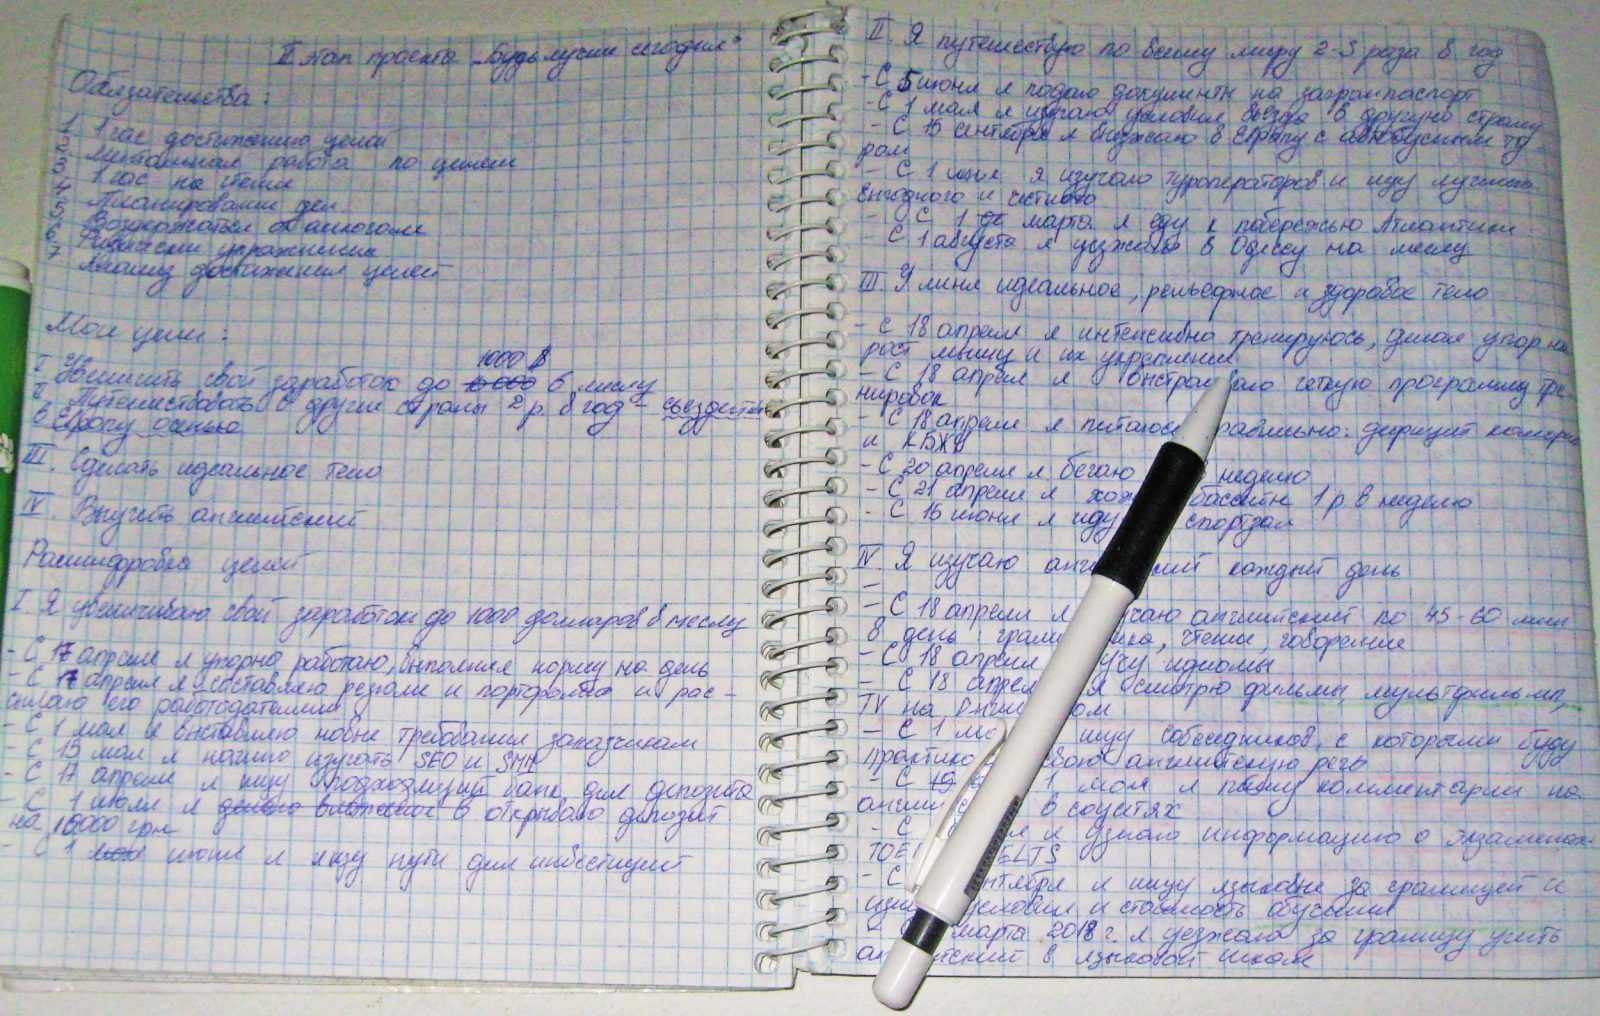 II этап проекта „Будь лучше сегодня"
Обязательства:
1. 1 час достижению целей
2. Ментальная работа по целям
3. 1 час на чтение
4. Планирование дел
5. Воздержаться от алкоголя
6. Физические упражнения
7. Анализ достижения целей
Мои цели:
1000 $
I Увеличить свой заработок до в месяц
II. Путешествовать в другие страны 2 р. в год – съездить
в Европу осенью
III. Сделать идеальное тело
IV. Выучить английский
Расшифровка целей
I Я увеличиваю свой заработок до 1000 долларов в месяц
- С 17 апреля я упорно работаю, выполняя норму на день
- С 17 апреля я составляю резюме и портфолио и рас-
сылаю его работодателям
- С 1 мая я выставляю новые требования заказчикам
- С 15 мая я начинаю изучать SEO и SMM
- С 17 апреля я ищу подходящий банк для депозита
- С 1 июля я открываю депозит
на грн
- С 1 июня я ищу пути для инвестиций
II. Я путешествую по всему миру 2-3 раза в год
- С 5 июня я подаю документы на загранпаспорт
- С 1 мая я изучаю условия въезда в другую страну
- С 15 сентября я выезжаю в Европу с автобусным ту-
ром
- С 1 июня я изучаю туроператоров и ищу лучшего,
выгодного и честного
- С 1 марта я еду к побережью Атлантики
- С 1 августа я уезжаю в Одессу на месяц
III. У меня идеальное, рельефное и здоровое тело
- С 18 апреля я интенсивно тренируюсь, делая упор на
рост мышц и их укрепление
- С 18 апреля я четкую программу тре-
нировок
- С 18 апреля я питаюсь правильно: дефицит калорий
и КБЖУ
- С 20 апреля я бегаю неделю
- С 21 апреля я бассейн 1 р. в неделю
- С 15 июня я иду спортзал
IV. Я изучаю английский каждый день
-
- С 18 апреля я изучаю английский по 45-60 мин
в день: грамматика, чтение, говорение
- С 18 апреля учу идиомы
- С 18 апреля я смотрю фильмы, мультфильмы,
TV на английском
- С 1 мая ищу собеседников, с которыми буду
практиковать свою английскую речь
- С 1 мая я пишу комментарии на
англий в соцсетях
- С я узнаю информацию о экзаменах
TOEFL IELTS
- С сентября я ищу языковые за границей и
условия и стоимость обучения
- С марта 2018 г. я уезжаю за границу учить
английский в языковой школе